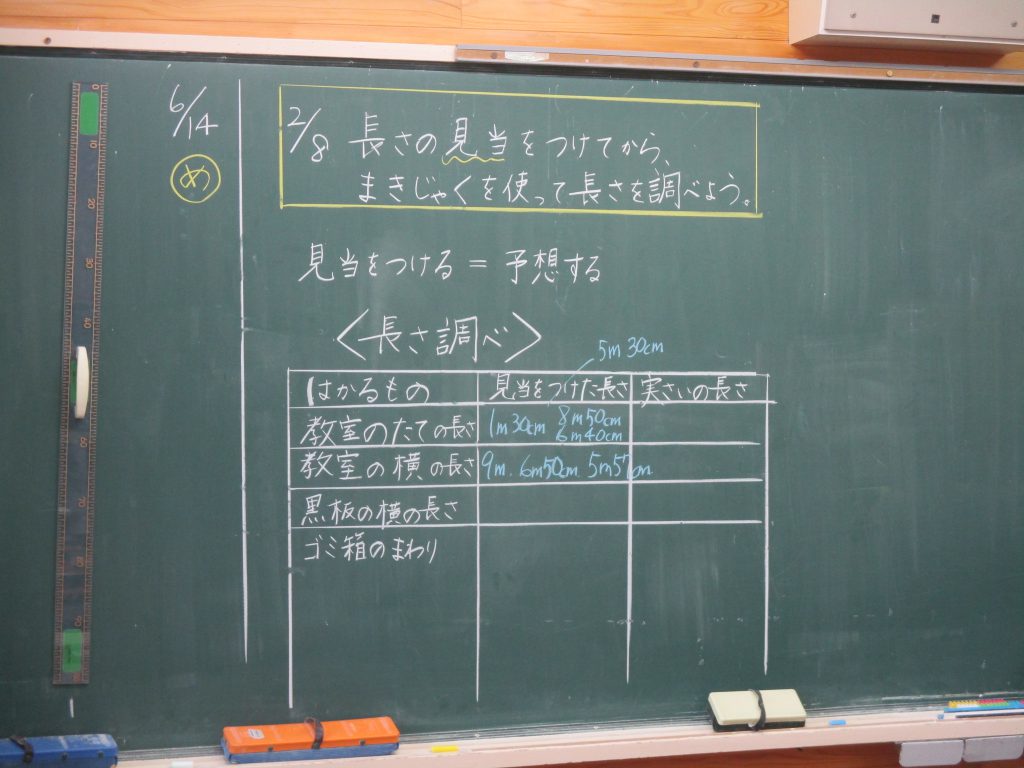 6/14
め
2/8 長さの見当をつけてから、
まきじゃくを使って長さを調べよう。
見当をつける = 予想する
〈長さ調べ〉
5m30cm
はかるもの 見当をつけた長さ 実さいの長さ
教室のたての長さ 1m30cm 8m50cm
6m40cm
教室の横の長さ 9m. 6m50cm 5m57cm
黒板の横の長さ
ゴミ箱のまわり
0
10
20
30
40
60
80
90